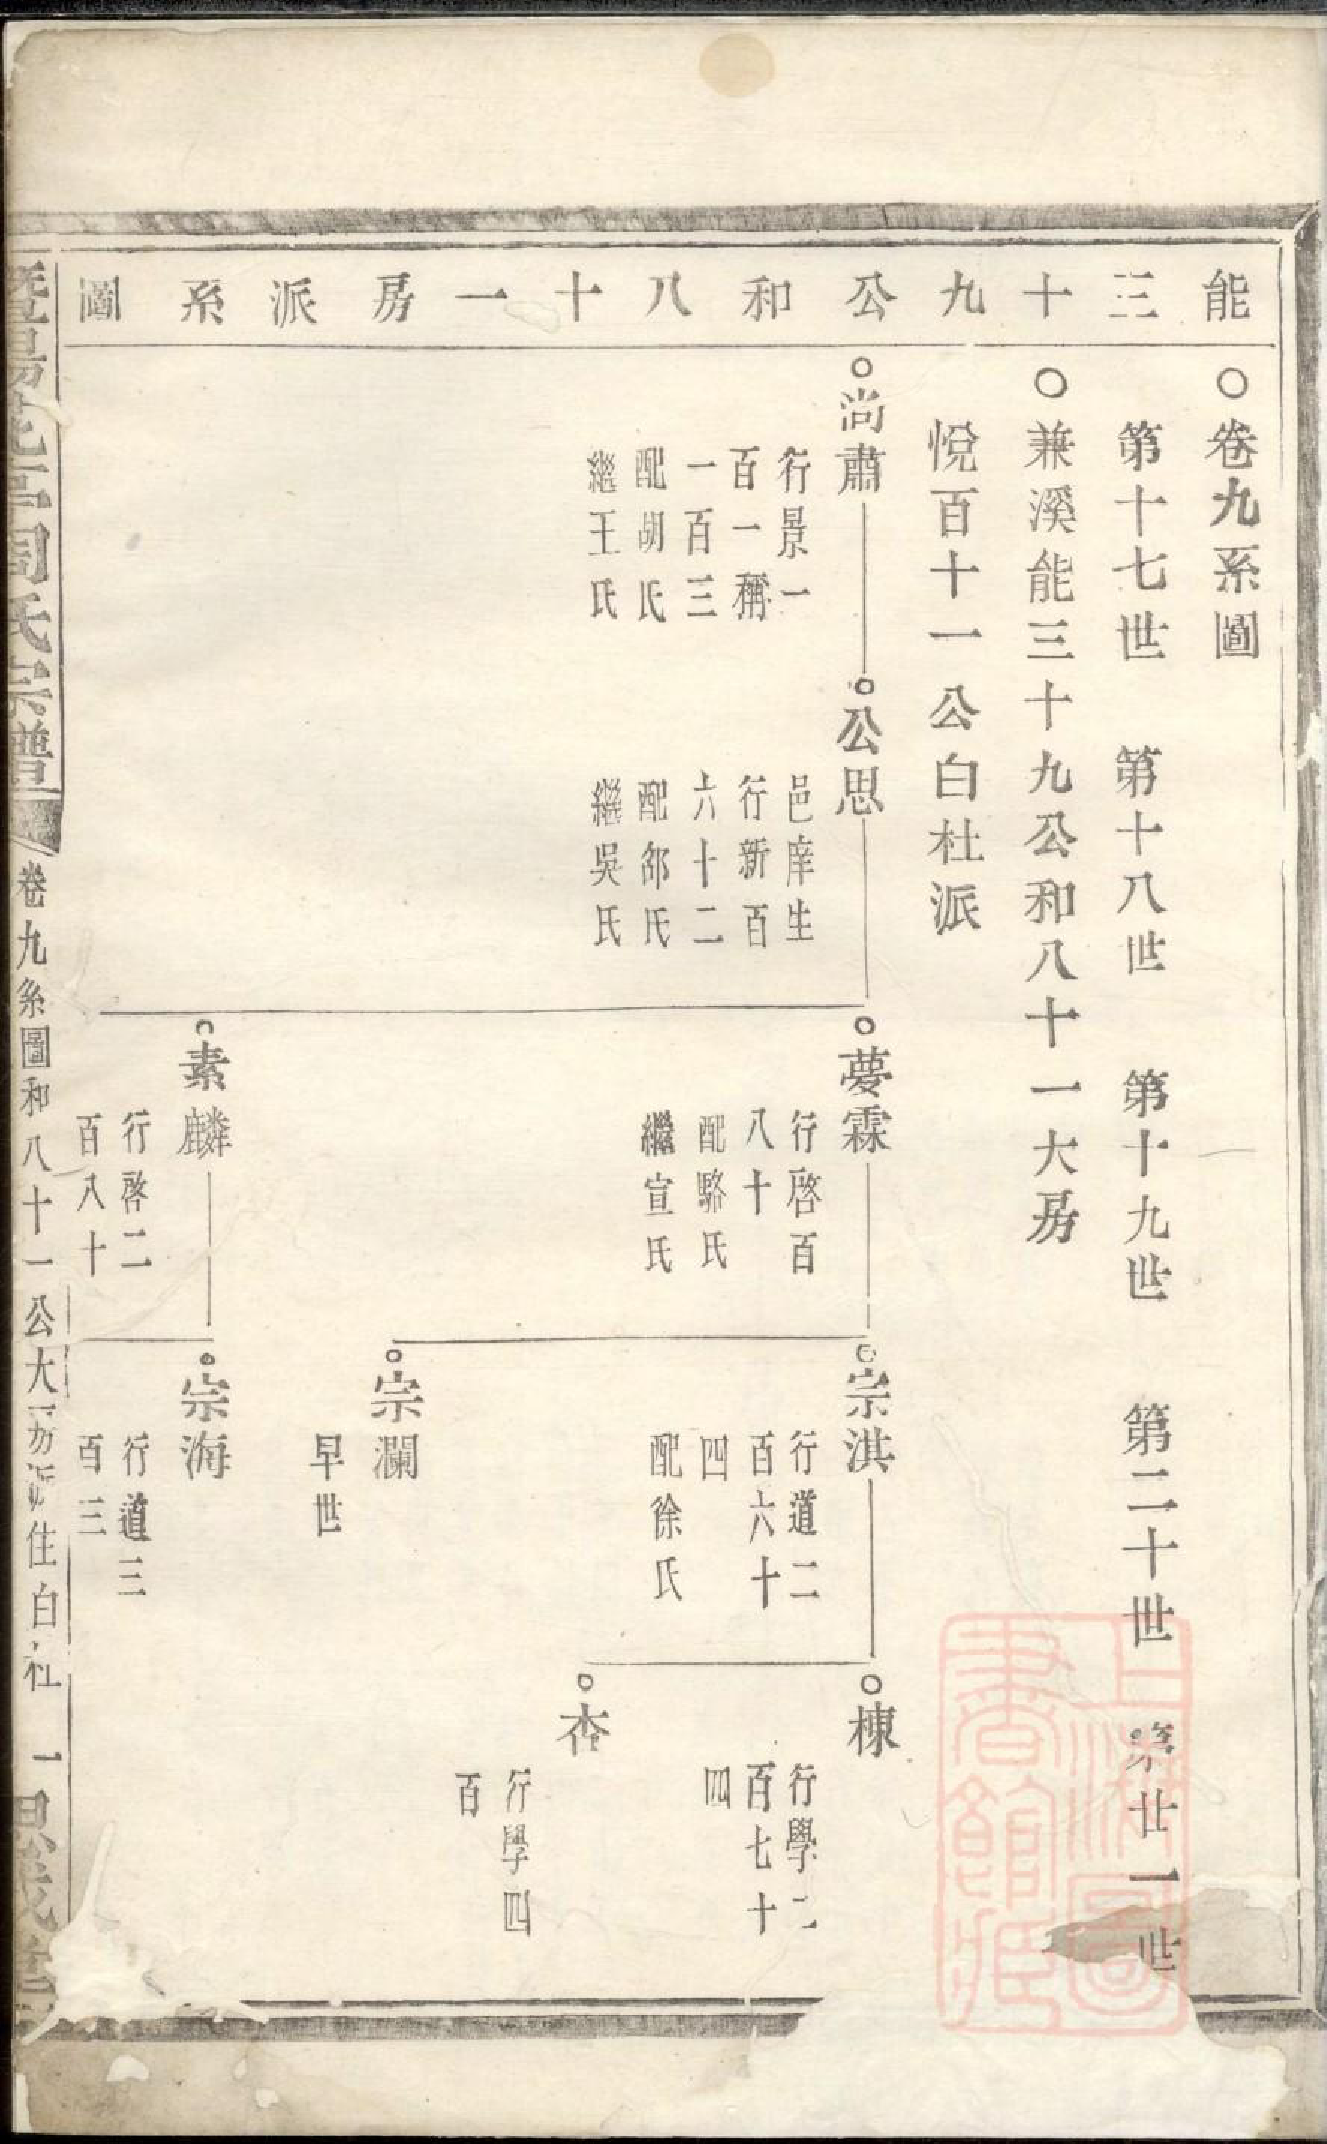 能三十九公和八十一房派系圖
卷九系圖
第十七世　第十八世　第十九世　第二十世　第廿一世
兼溪能三十九公和八十一大房
悅百十一公白杜派
尚肅
行景一
百一稱
一百三
配胡氏
繼王氏
公思
邑庠生
行新百
六十二
配邵氏
繼吳氏
夢霖
行啓百
八十
配駱氏
繼宣氏
宗淇
行道二
百六十
四
配徐氏
棟
行學二
百七十
四
杏
行學四
百
宗瀾
早世
素麟
行啓二
百八十
宗海
行道三
百三
暨陽 周氏宗譜
卷九系圖和八十一公大房派住白杜　一
上海圖書館藏